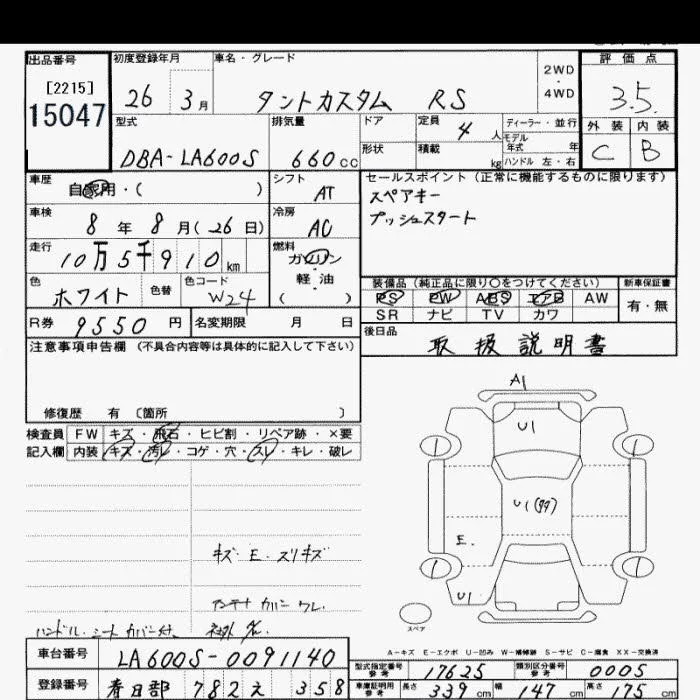 出品番号 初度登録年月 車名・グレード 2WD・4WD 評価点
[2215]
15047
26 3月 タントカスタム RS 3.5
型式 排気量 ドア 定員 4人 ディーラー・並行 外装 内装
モデル年式 年
DBA-LA600S 660cc 形状 積載 kg ハンドル 左・右 C B
車歴 自家用・( ) シフト AT セールスポイント(正常に機能するものに限ります)
スペアキー
プッシュスタート
車検 8年 8月(26日) 冷房 AC
走行 10万5千910km 燃料 ガソリン・軽油 ( )
色 ホワイト 色替 色コード W24
装備品(純正品に限り○をつけてください) 新車保証書
PS PW ABS エアB AW 有・無
SR ナビ TV カワ
R券 9550円 名変期限 月 日 後日品
取扱説明書
注意事項申告欄(不具合内容等は具体的に記入して下さい)
修復歴 有 〔箇所 〕
検査員 FW キズ・飛石・ヒビ割・リペア跡・×要
記入欄 内装 キズ・汚レ・コゲ・穴・スレ・キレ・破レ
A1
U1
U1
E.
U1
スペア
キズ・E・スリキズ
アンテナ カバー ワレ
ハンドル・シート カバー付
社外
A-キズ E-エクボ U-凹み W-補修跡 S-サビ C-腐食 XX-交換済
車台番号 LA600S-0091140
型式指定番号 参考 17625 類別区分番号 参考 0005
登録番号 春日部 782 え 358
車庫証明用 参考 長さ 339cm 幅 147cm 高さ 175cm